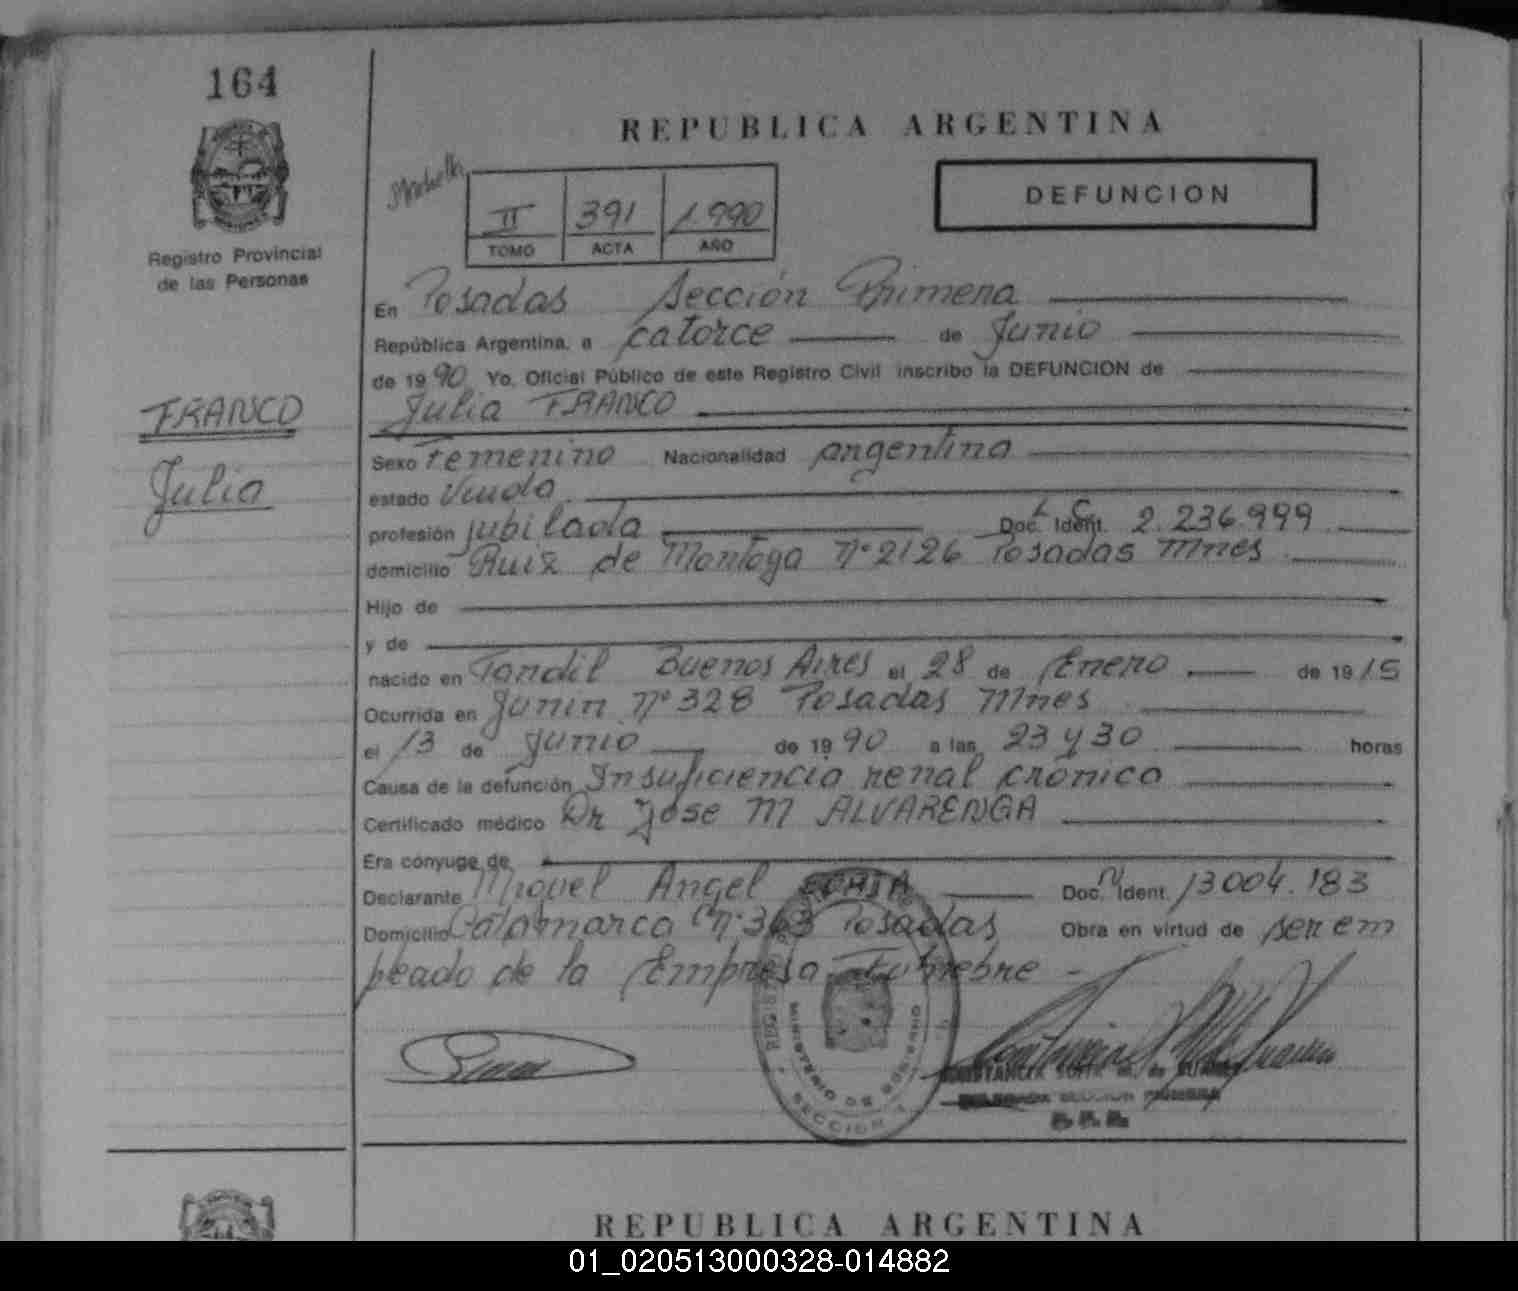 164
REPUBLICA ARGENTINA
Registro Provincial
de las Personas
II 391 1.990
TOMO ACTA AÑO
DEFUNCION
En Posadas Sección Primera
República Argentina, a catorce de Junio
de 1990 Yo, Oficial Público de este Registro Civil inscribo la DEFUNCION de
Julia FRANCO
FRANCO
Julia
Sexo Femenino Nacionalidad argentina
estado Viuda
profesión jubilada Doc. Ident. L C 2.236.999
domicilio Ruiz de Montoya Nº 2126 Posadas Mnes
Hijo de
y de
nacido en Tandil Buenos Aires el 28 de Enero de 1915
Ocurrida en Junin Nº 328 Posadas Mnes
el 13 de Junio de 1990 a las 23 y 30 horas
Causa de la defunción Insuficiencia renal cronica
Certificado médico Dr Jose M ALVARENGA
Era cónyuge de
Declarante Miguel Angel Doc. N Ident. 13004.183
Domicilio Catamarca Nº 363 Posadas Obra en virtud de ser em
pleado de la Empresa Funebre -
MINISTERIO DE GOBIERNO
SECCION 1
DELEGADA SECCION PRIMERA
REPUBLICA ARGENTINA
01_020513000328-014882